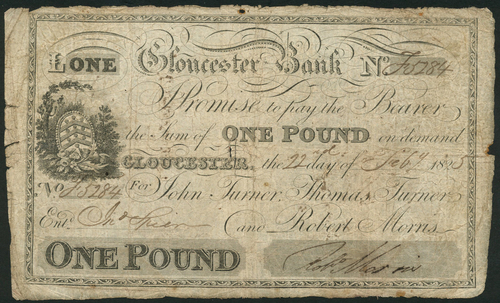 £ONE Gloucester Bank No F5284
I Promise to pay the Bearer
the Sum of ONE POUND on demand
GLOUCESTER, the 22 day of Feby 182
No F5284 For John Turner, Thomas Turner
Entd and Robert Morris
ONE POUND Robt Morris